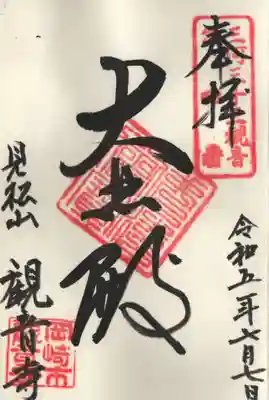 奉拝
大悲殿
見松山 観音寺
令和五年六月七日
岡崎市